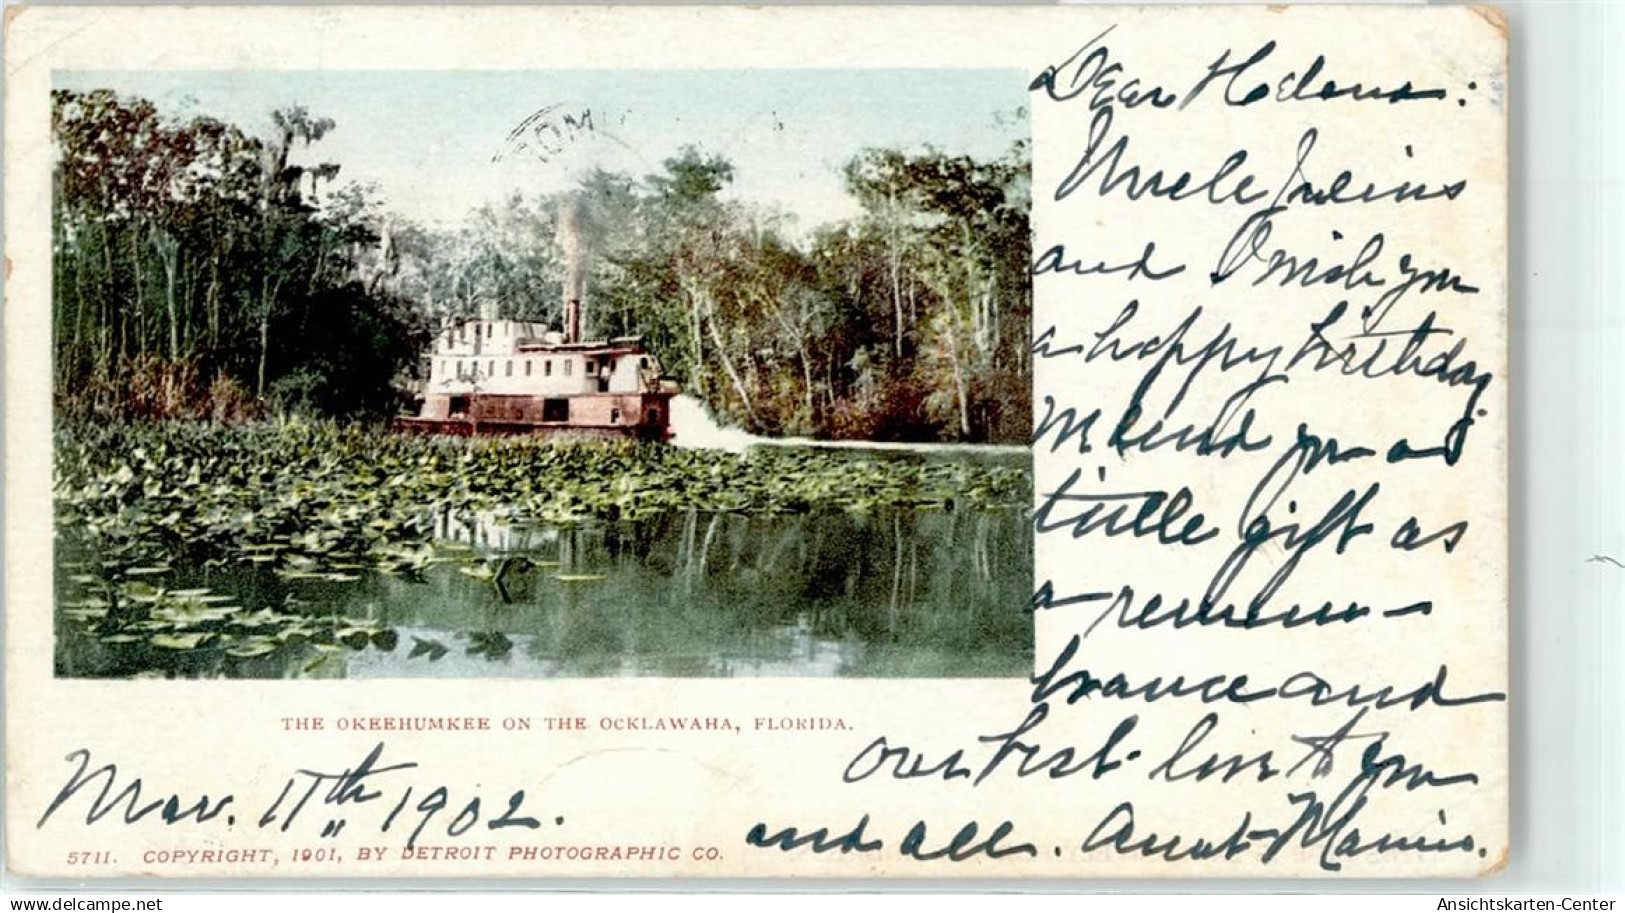 Dear Helena:
Uncle Julius
and I wish you
a happy birthday
We send you a
little gift as
a remem-
brance and
our best love to you
and all. Aunt Mamie.
THE OKEEHUMKEE ON THE OCKLAWAHA, FLORIDA.
Mar. 11th 1902.
5711. COPYRIGHT, 1901, BY DETROIT PHOTOGRAPHIC CO.
Ansichtskarten-Center